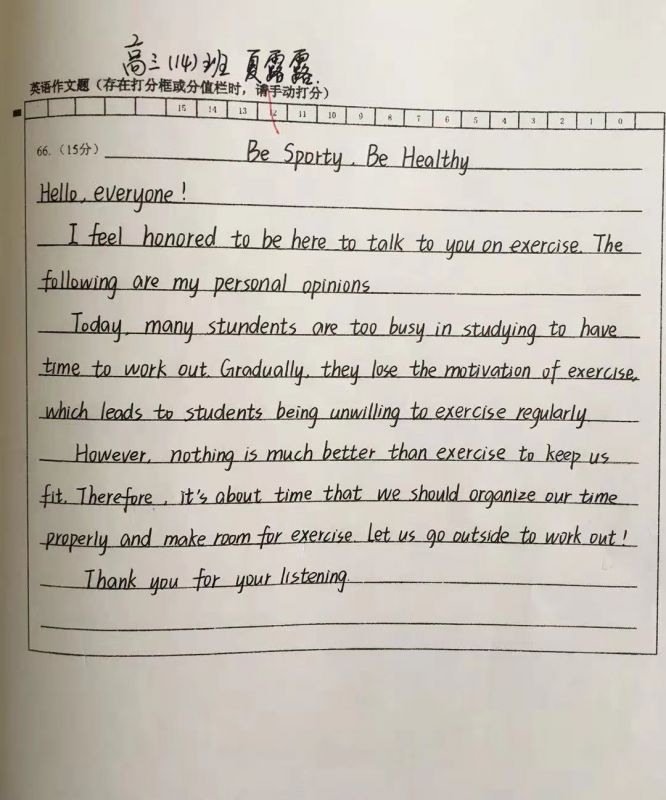 2
高三(14)班 夏露露.
英语作文题(存在打分框或分值栏时,请手动打分)
15 14 13 12 11 10 9 8 7 6 5 4 3 2 1 0
66.(15分) Be Sporty, Be Healthy
Hello, everyone!
I feel honored to be here to talk to you on exercise. The
following are my personal opinions
Today, many stundents are too busy in studying to have
time to work out. Gradually, they lose the motivation of exercise,
which leads to students being unwilling to exercise regularly.
However, nothing is much better than exercise to keep us
fit. Therefore, it's about time that we should organize our time
properly and make room for exercise. Let us go outside to work out!
Thank you for your listening.